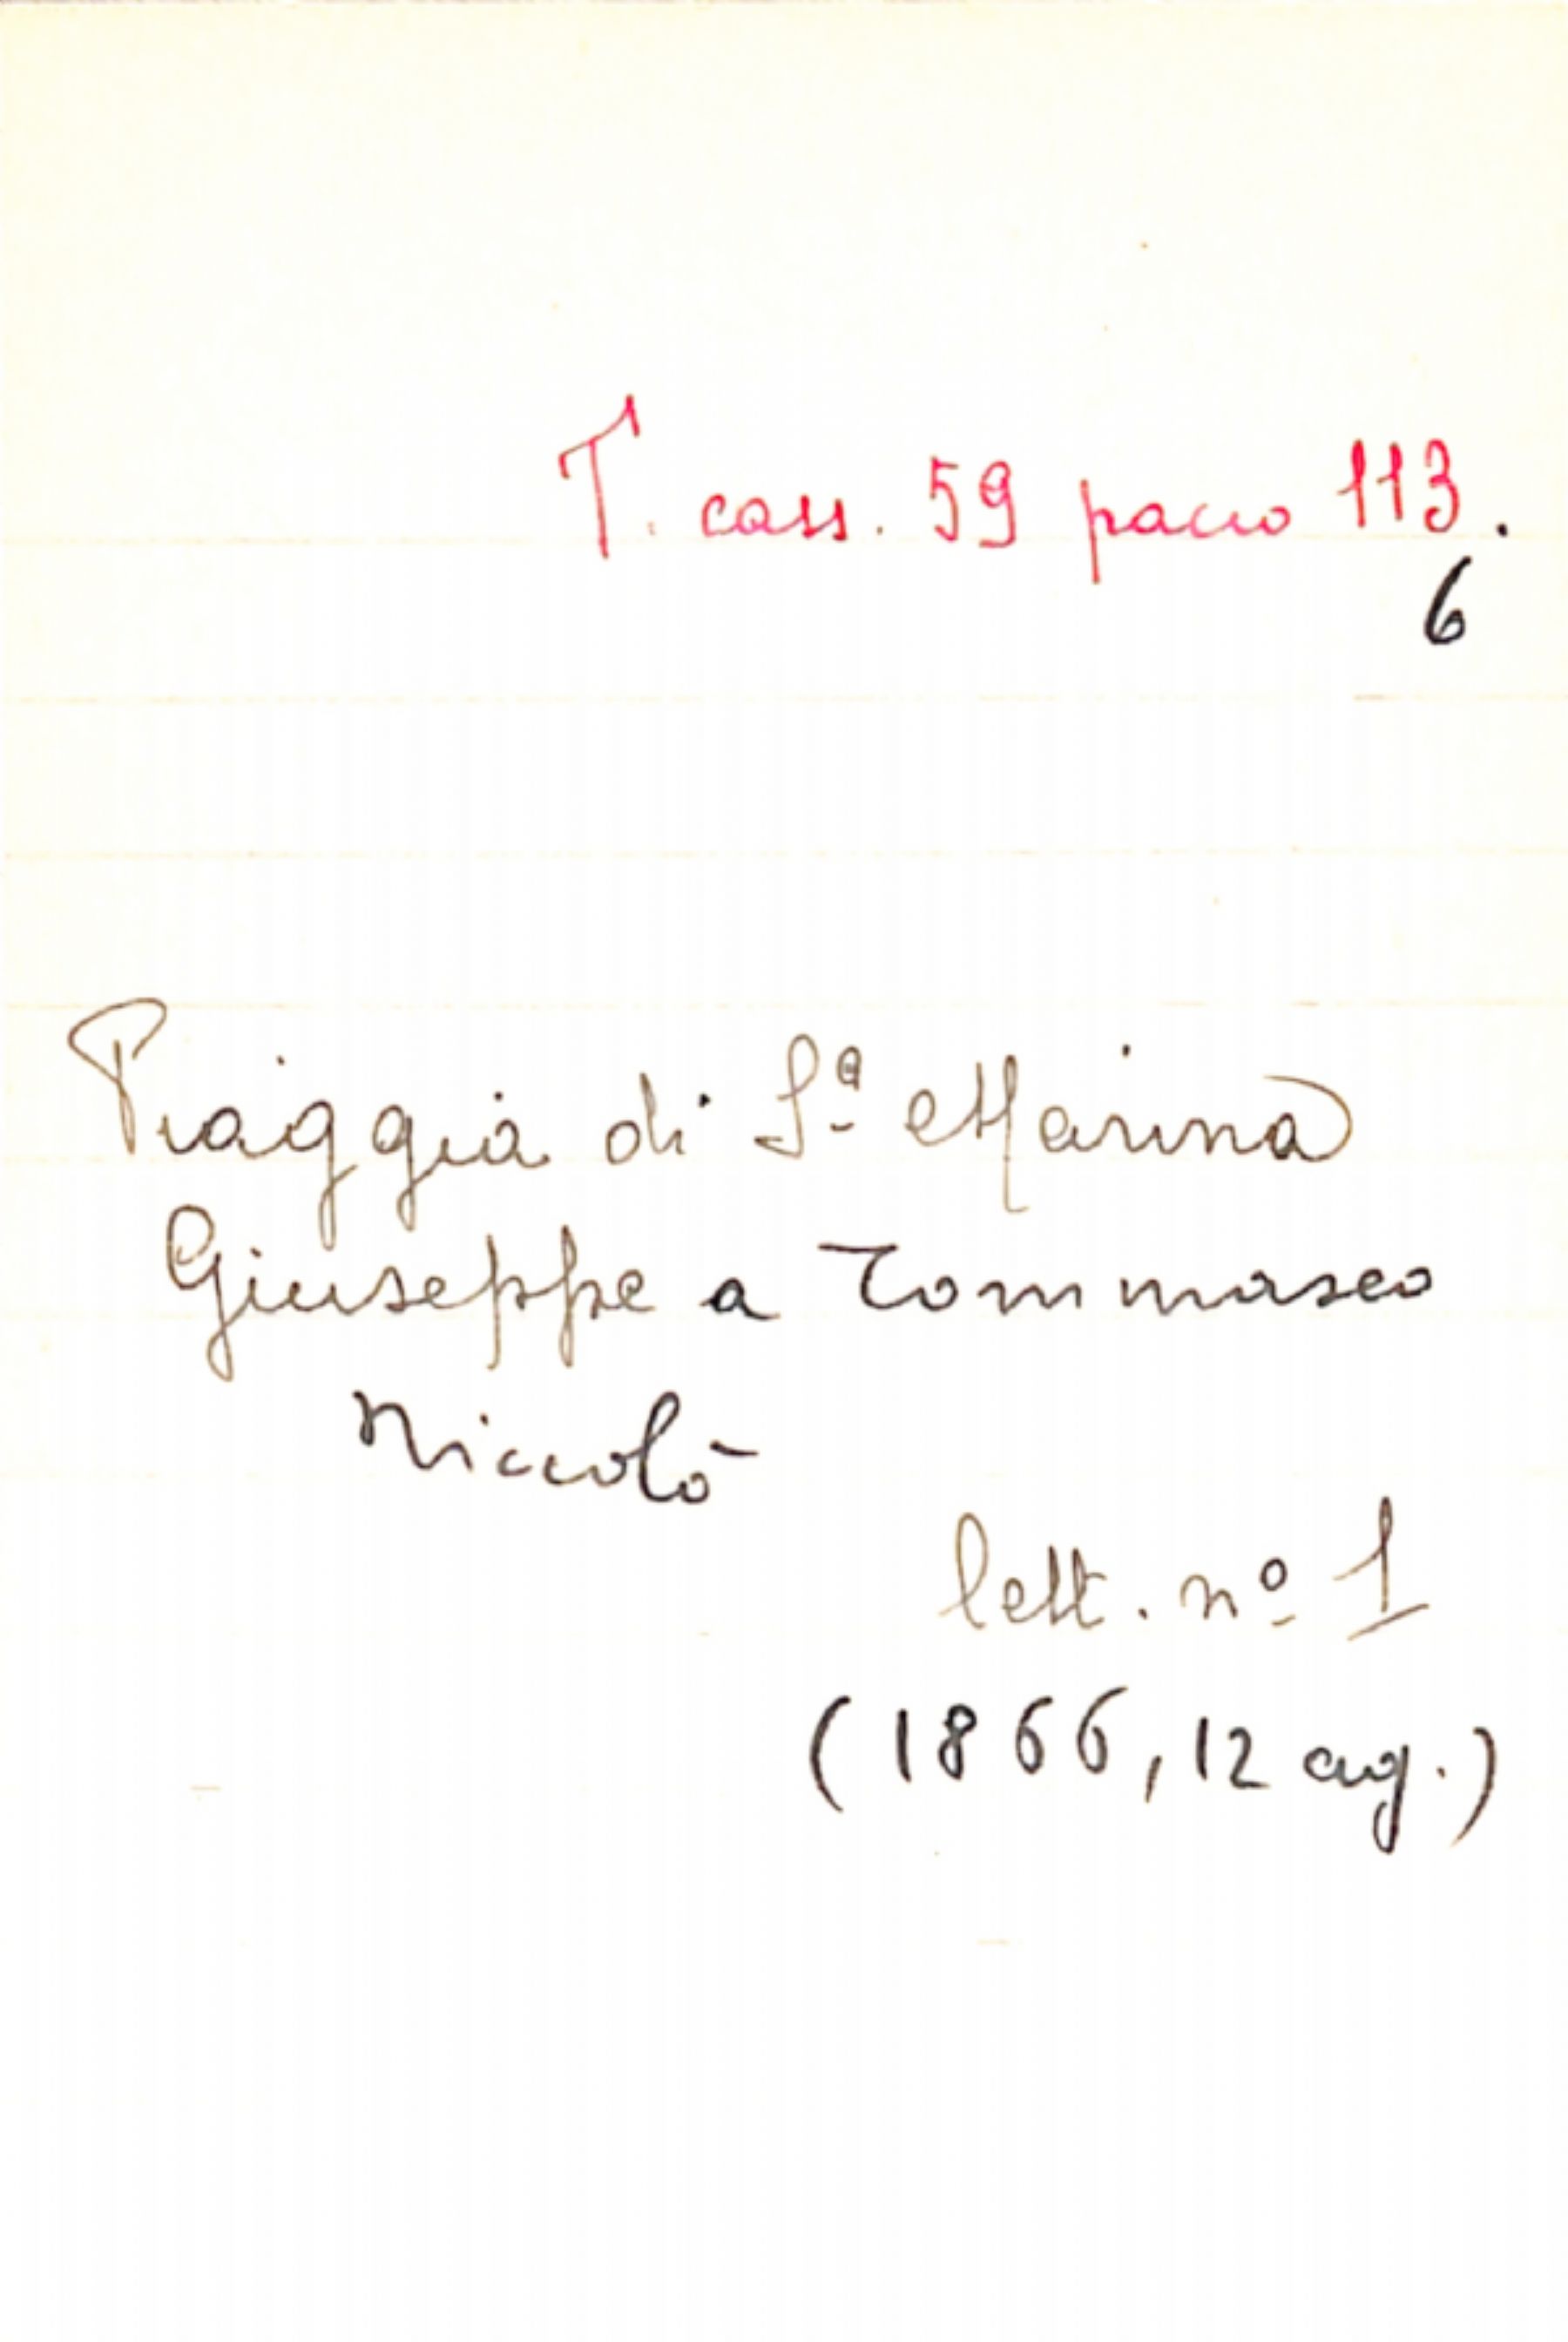 T. cass. 59 pacco 113.
6
Piaggia di Sª Marina
Giuseppe a Tommaseo
Niccolò
lett. nº 1
(1866, 12 ag.)